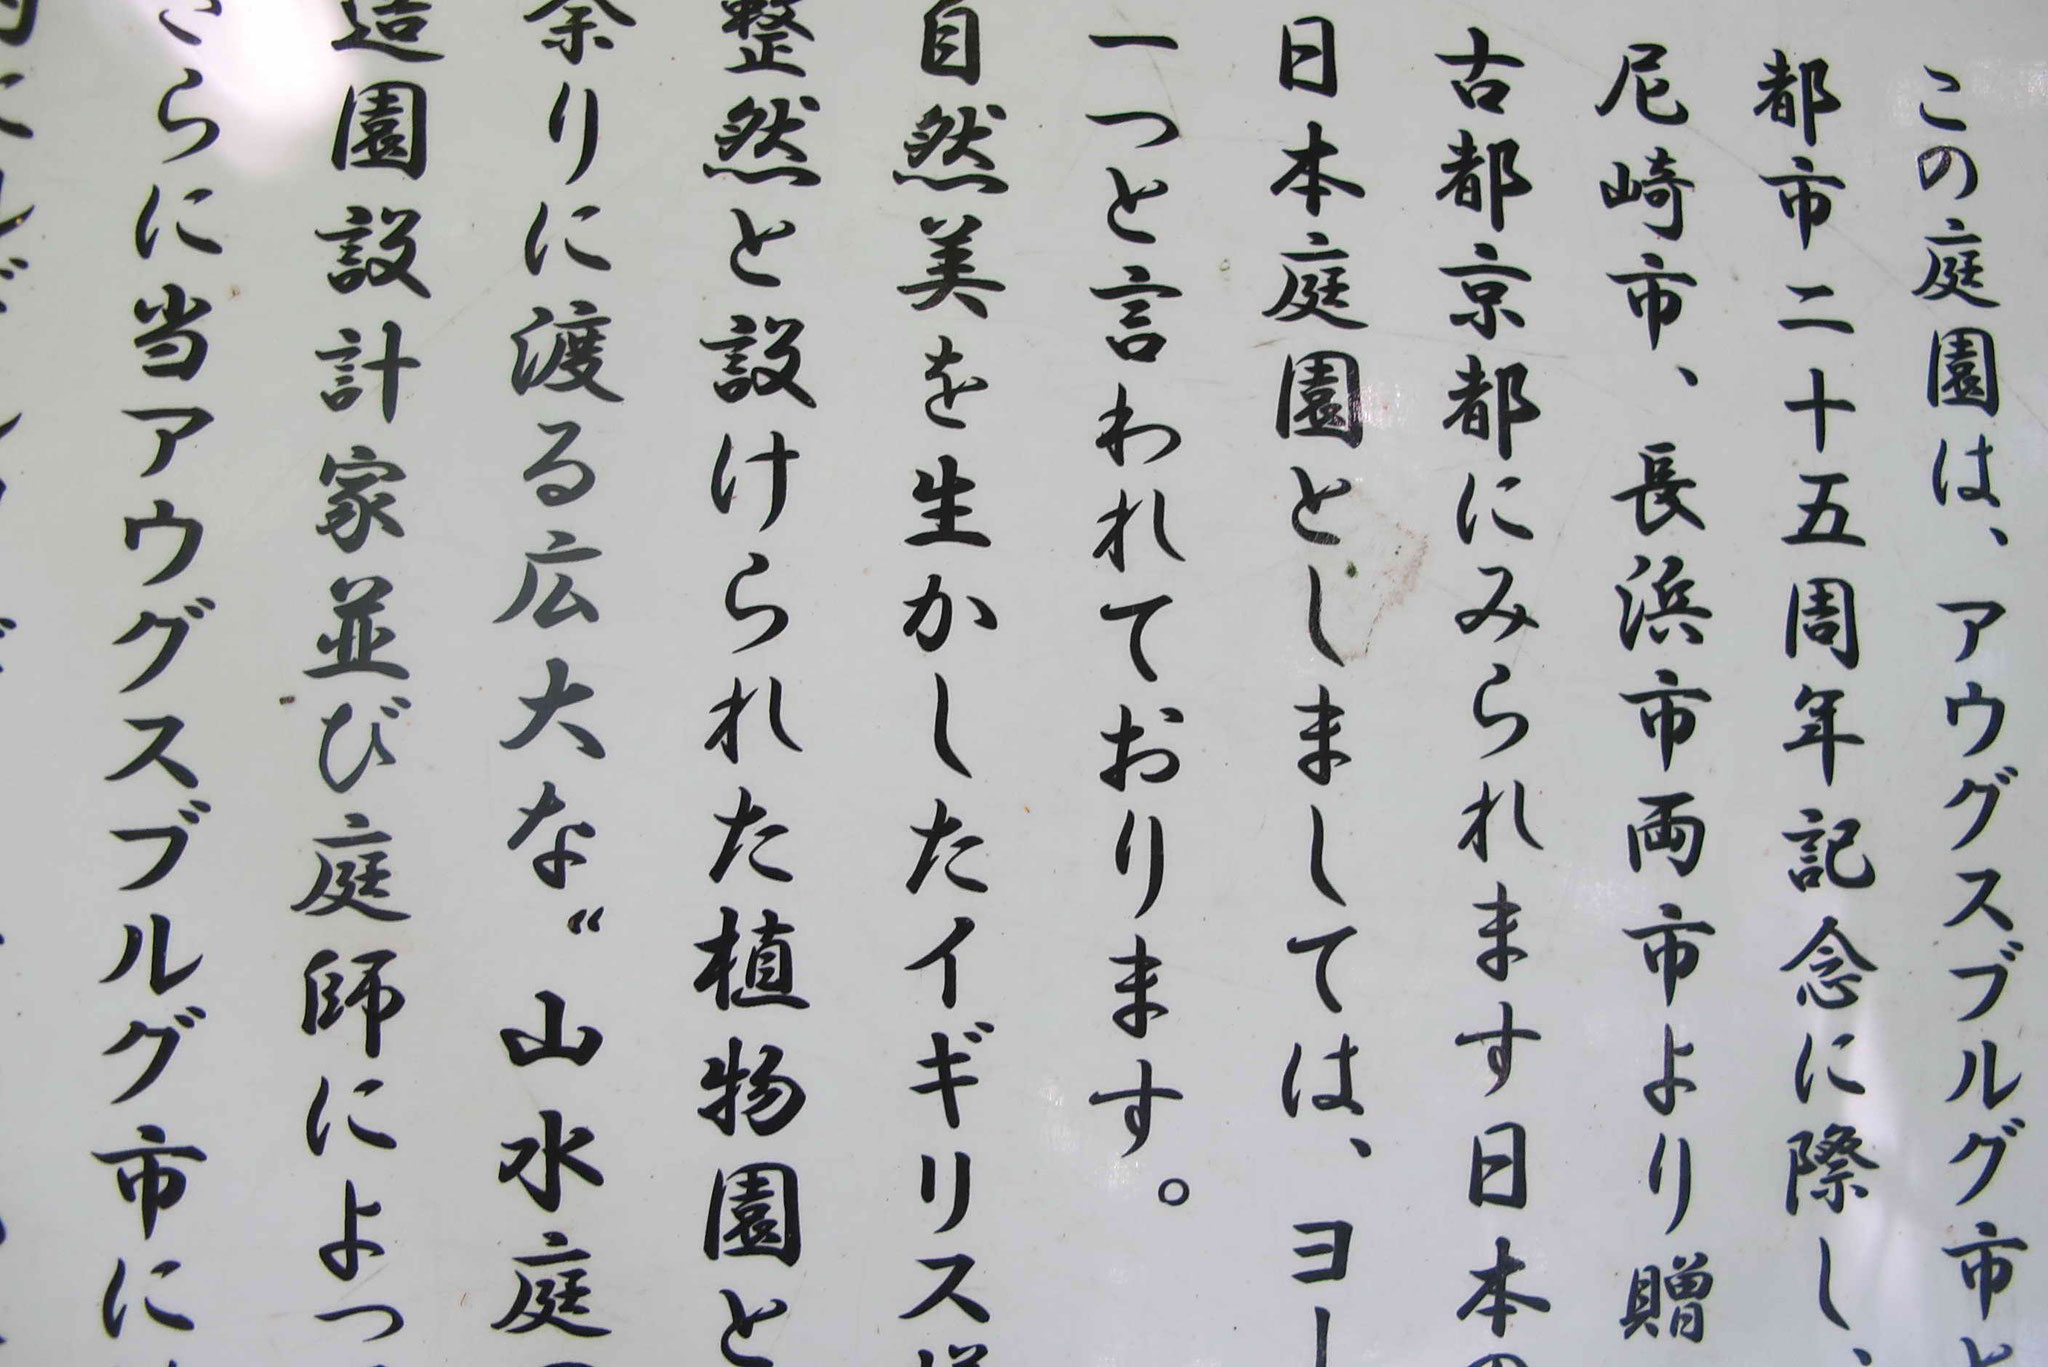 この庭園は、アウグスブルグ市と
都市二十五周年記念に際し、
尼崎市、長浜市両市より贈
古都京都にみられます日本の
日本庭園としましては、ヨー
一つと言われております。
自然美を生かしたイギリス様
整然と設けられた植物園と
余りに渡る広大な〝山水庭
造園設計家並び庭師によっ
さらに当アウグスブルグ市に